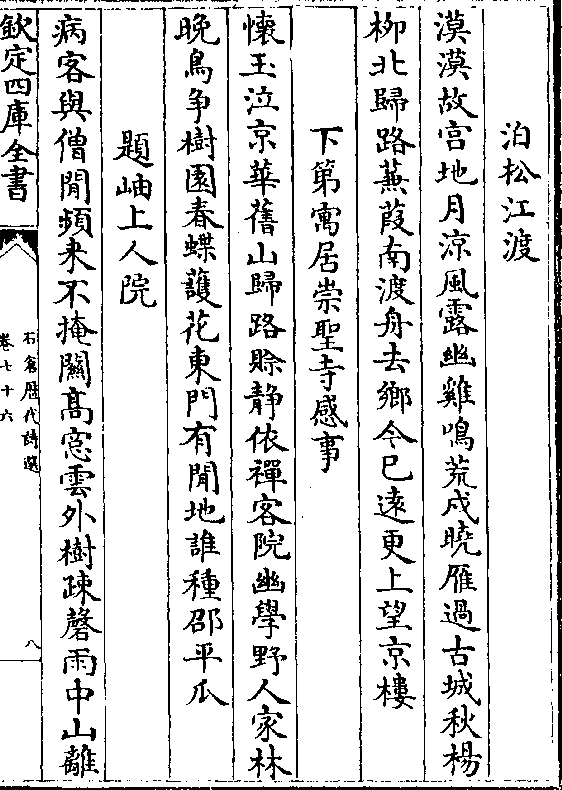 泊松江渡
漠漠故宫地月涼風露幽雞鳴荒戍曉雁過古城秋楊
柳北歸路蒹葭南渡舟去鄉今已遠更上望京樓
下第寓居崇聖寺感事
懷玉泣京華舊山歸路賒静依禪客院幽學野人家林
晚鳥争樹園春蝶護花東門有閒地誰種邵平瓜
題岫上人院
病客與僧閒頻来不掩關髙窓雲外樹疎磬雨中山離
欽定四庫全書
石倉歴代詩選
卷七十六
八